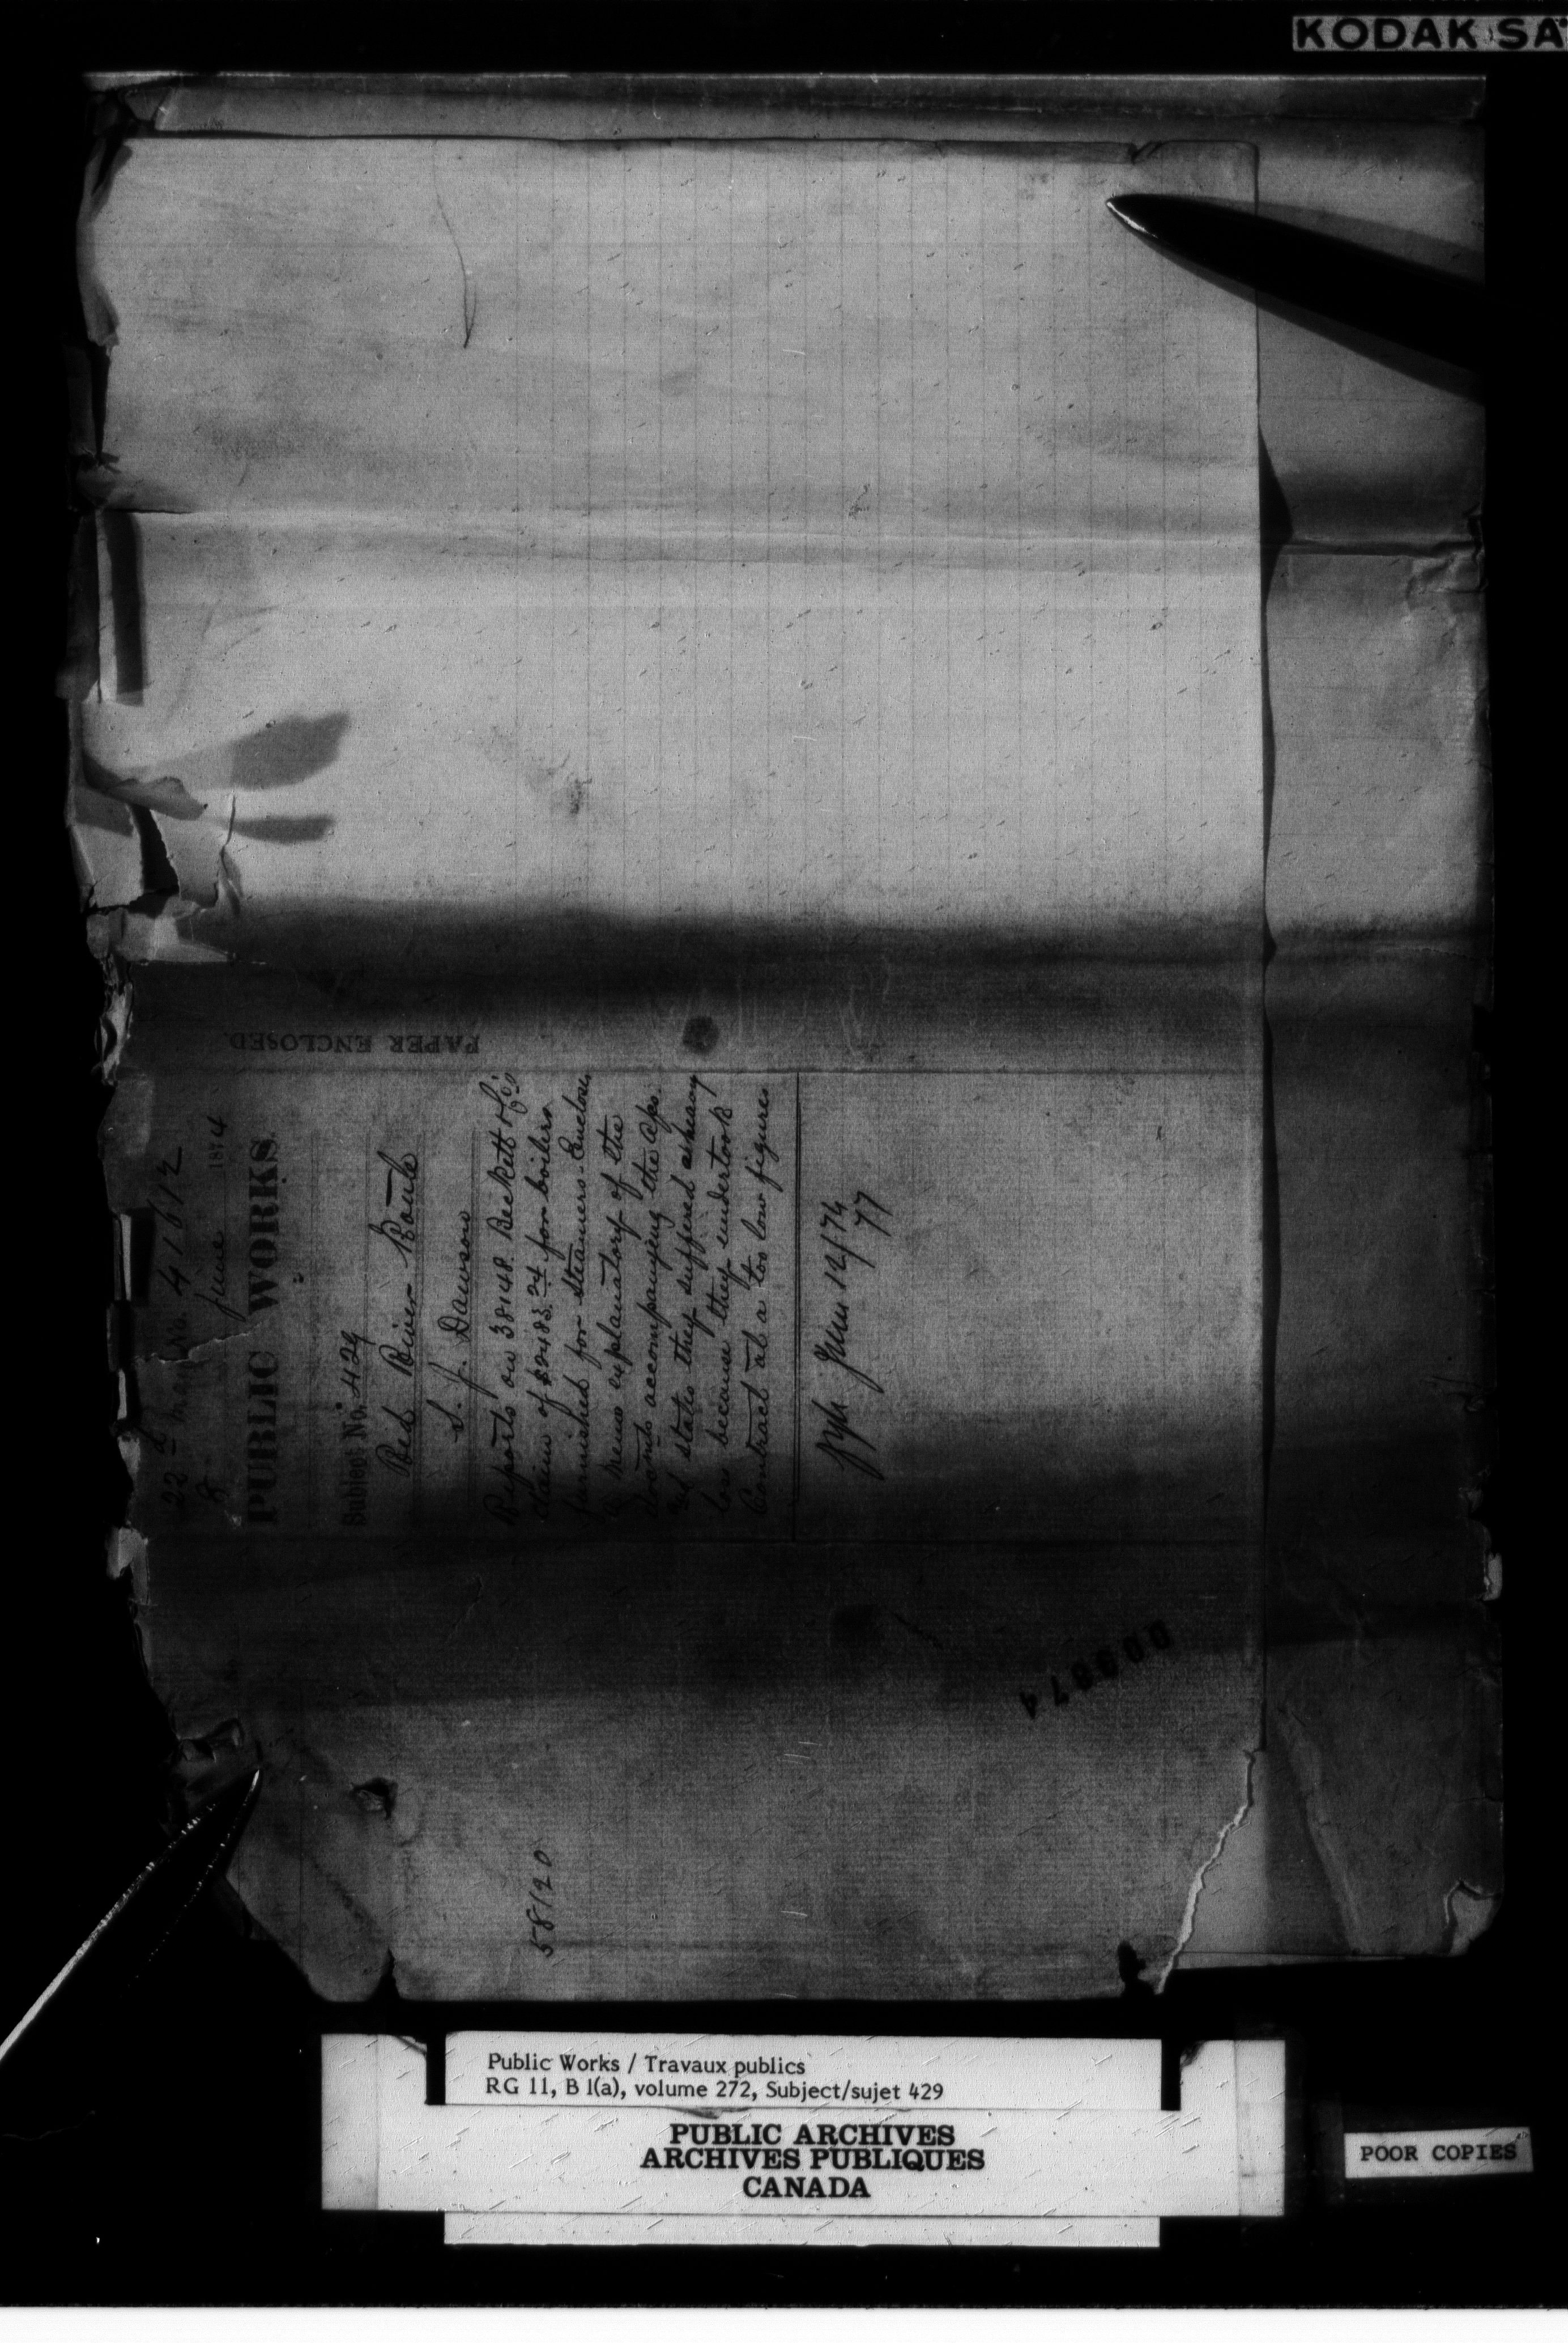 KODAK SA
22d May No. 41612
8 June 1874
PUBLIC WORKS.
Subject No. 429
Red River Route
S. J. Dawson
PAPER ENCLOSED.
Reports on 38148. Beckett & Co's
claim of $2483.24 for boilers
furnished for steamers. Encloses
a memo explanatory of the
accompanying the
and states they suffered a heavy
loss because they undertook
Contract at a too low figures
June 12/74
77
58120
Public Works / Travaux publics
RG 11, B 1(a), volume 272, Subject/sujet 429
PUBLIC ARCHIVES
ARCHIVES PUBLIQUES
CANADA
POOR COPIES